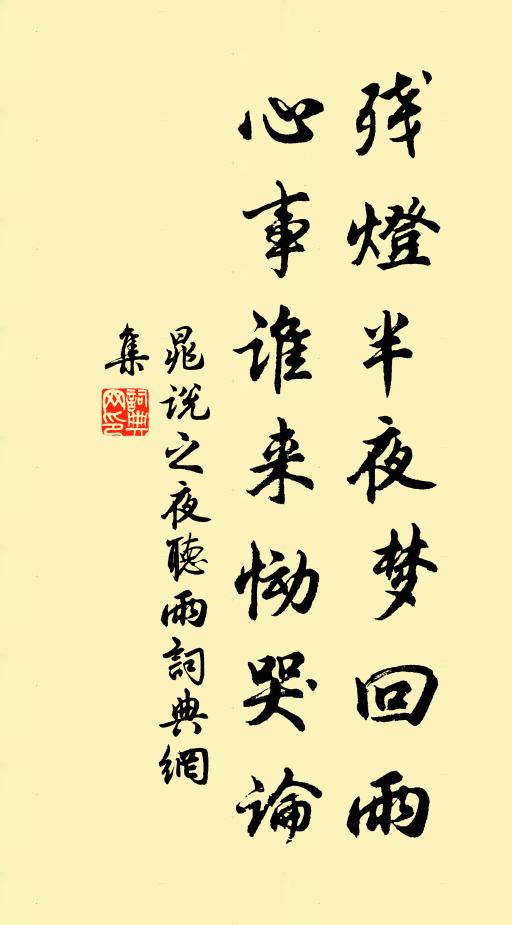 残燈半夜梦回雨
心事谁来恸哭论
晁说之夜聽雨詞典網
集
詞典
网印